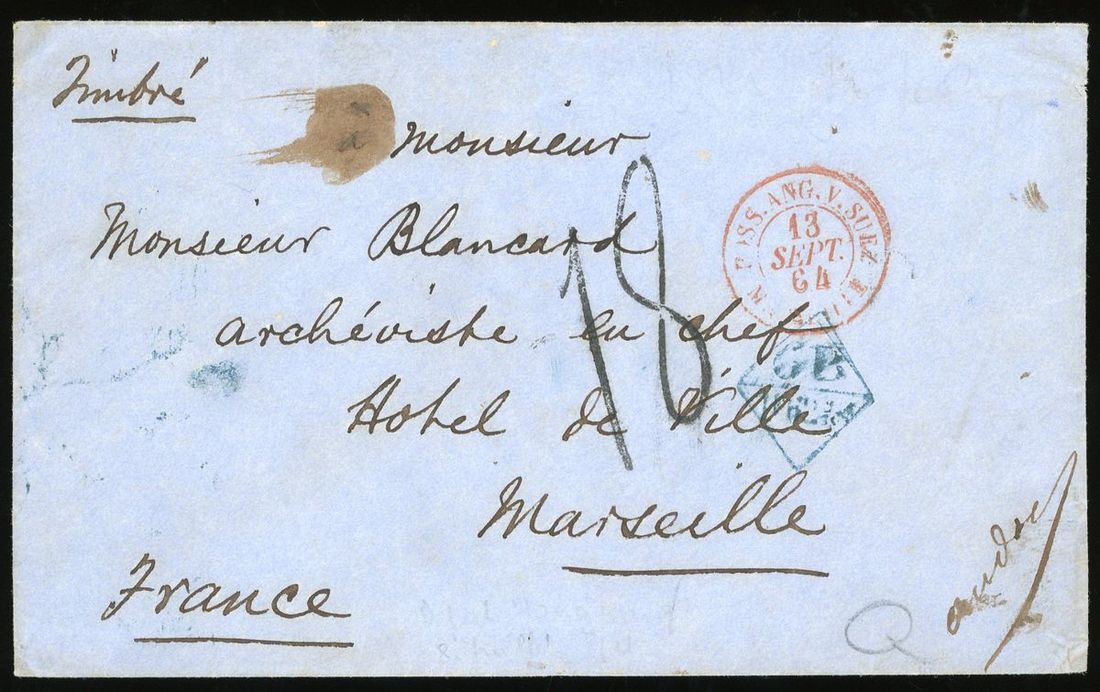 Timbré
à Monsieur
Monsieur Blancard
archéviste en chef
Hotel de Ville
Marseille
France
18
POSS. ANG. V. SUEZ
13
SEPT.
64
GB